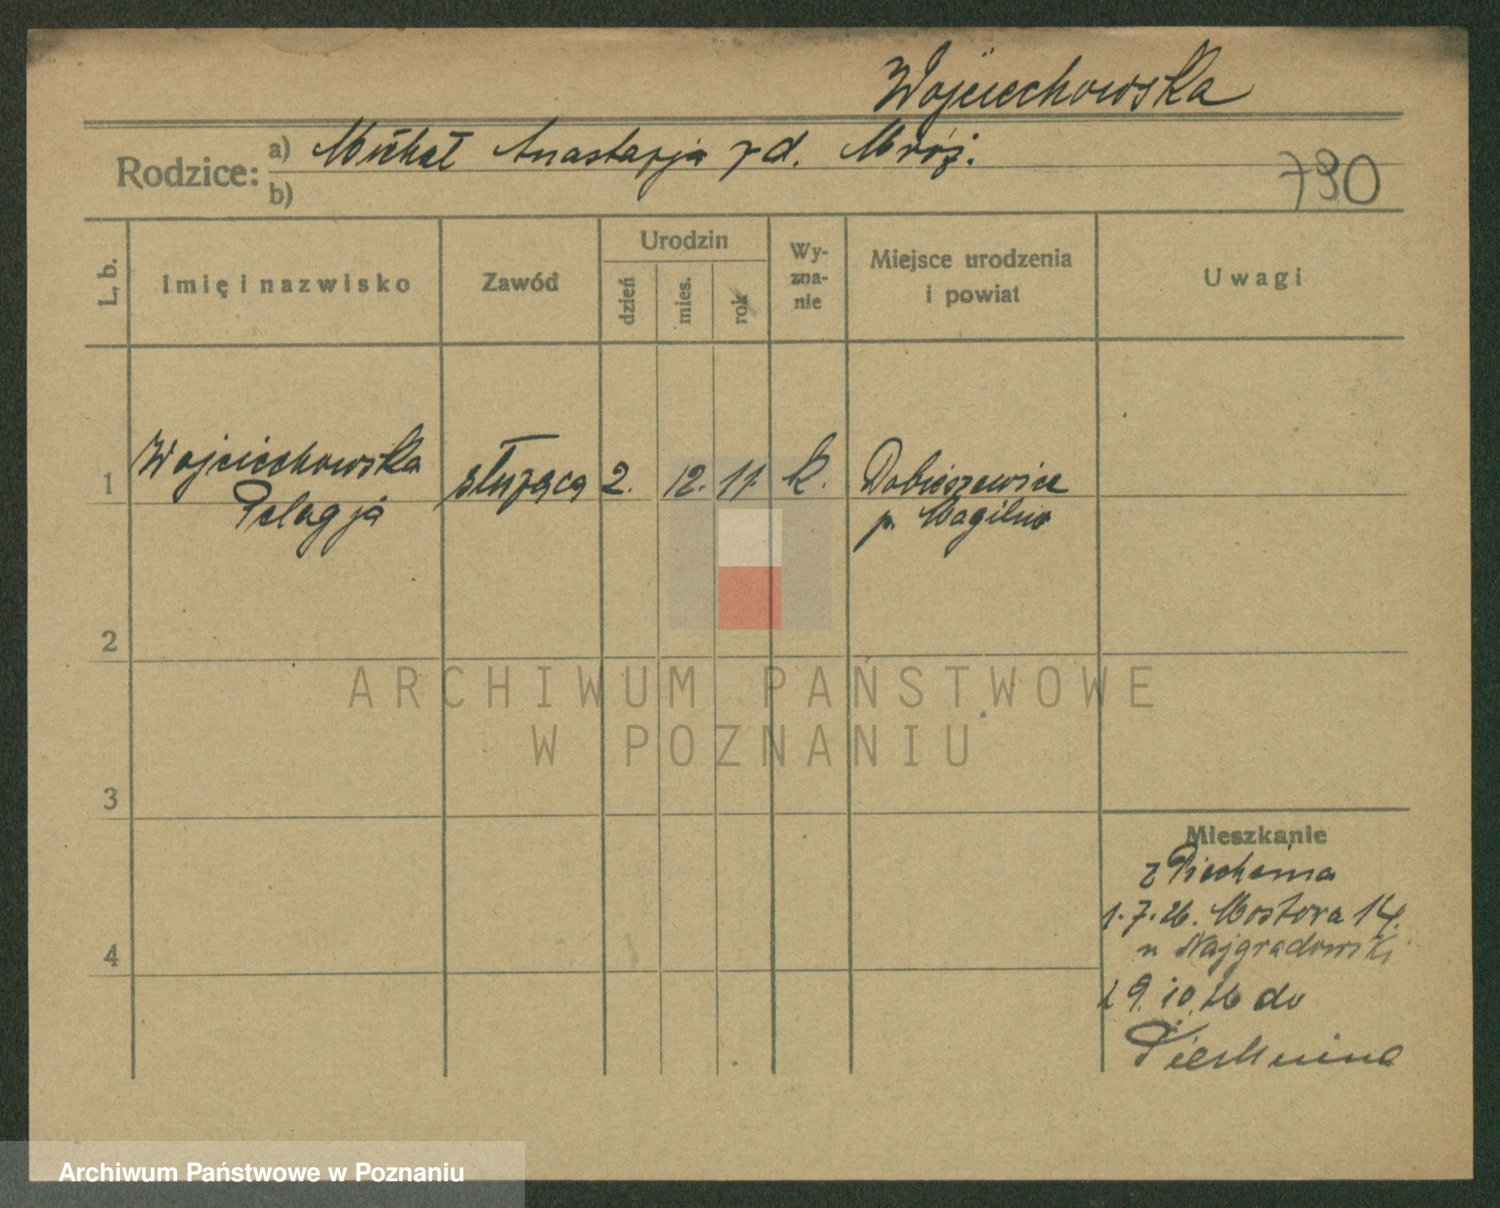 Wojciechowska
Rodzice: a) Michał Anastazja z d. Mróz.
b)
790
L. b. Imię i nazwisko Zawód Urodzin dzień mies. rok Wyznanie Miejsce urodzenia i powiat Uwagi
1 Wojciechowska służąca 2. 12. 11. k. Dobieszewice
Pelagja p. Mogilno
2
ARCHIWUM PAŃSTWOWE
W POZNANIU
3
Mieszkanie
z Piechcina
1.7.26. Mostowa 14.
4
29.10.26 do
Piechcina
Archiwum Państwowe w Poznaniu